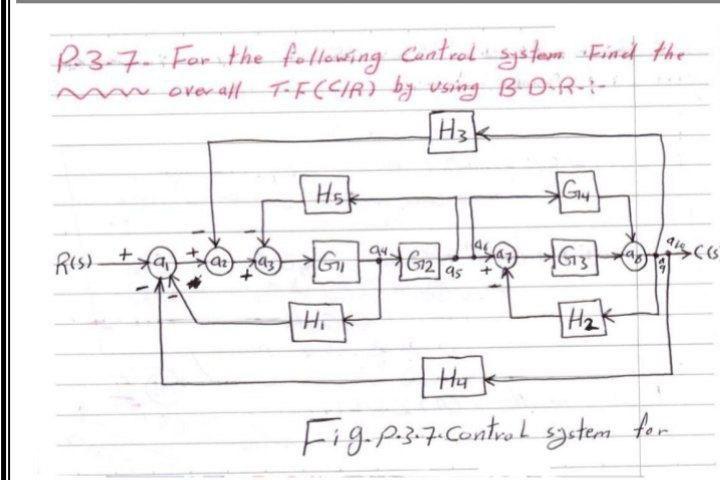 P.3-7- For the following Control system Find the
over all T.F(C/R) by using B.D.R-:-
H3
H5
G4
R(s) + a1 - - + a2 - + a3 - G1 a4 G2 a5 a6 + a7 - G3 a8 a9 a10 C(s
H1
H2
H4
Fig.p.3.7.Control system for